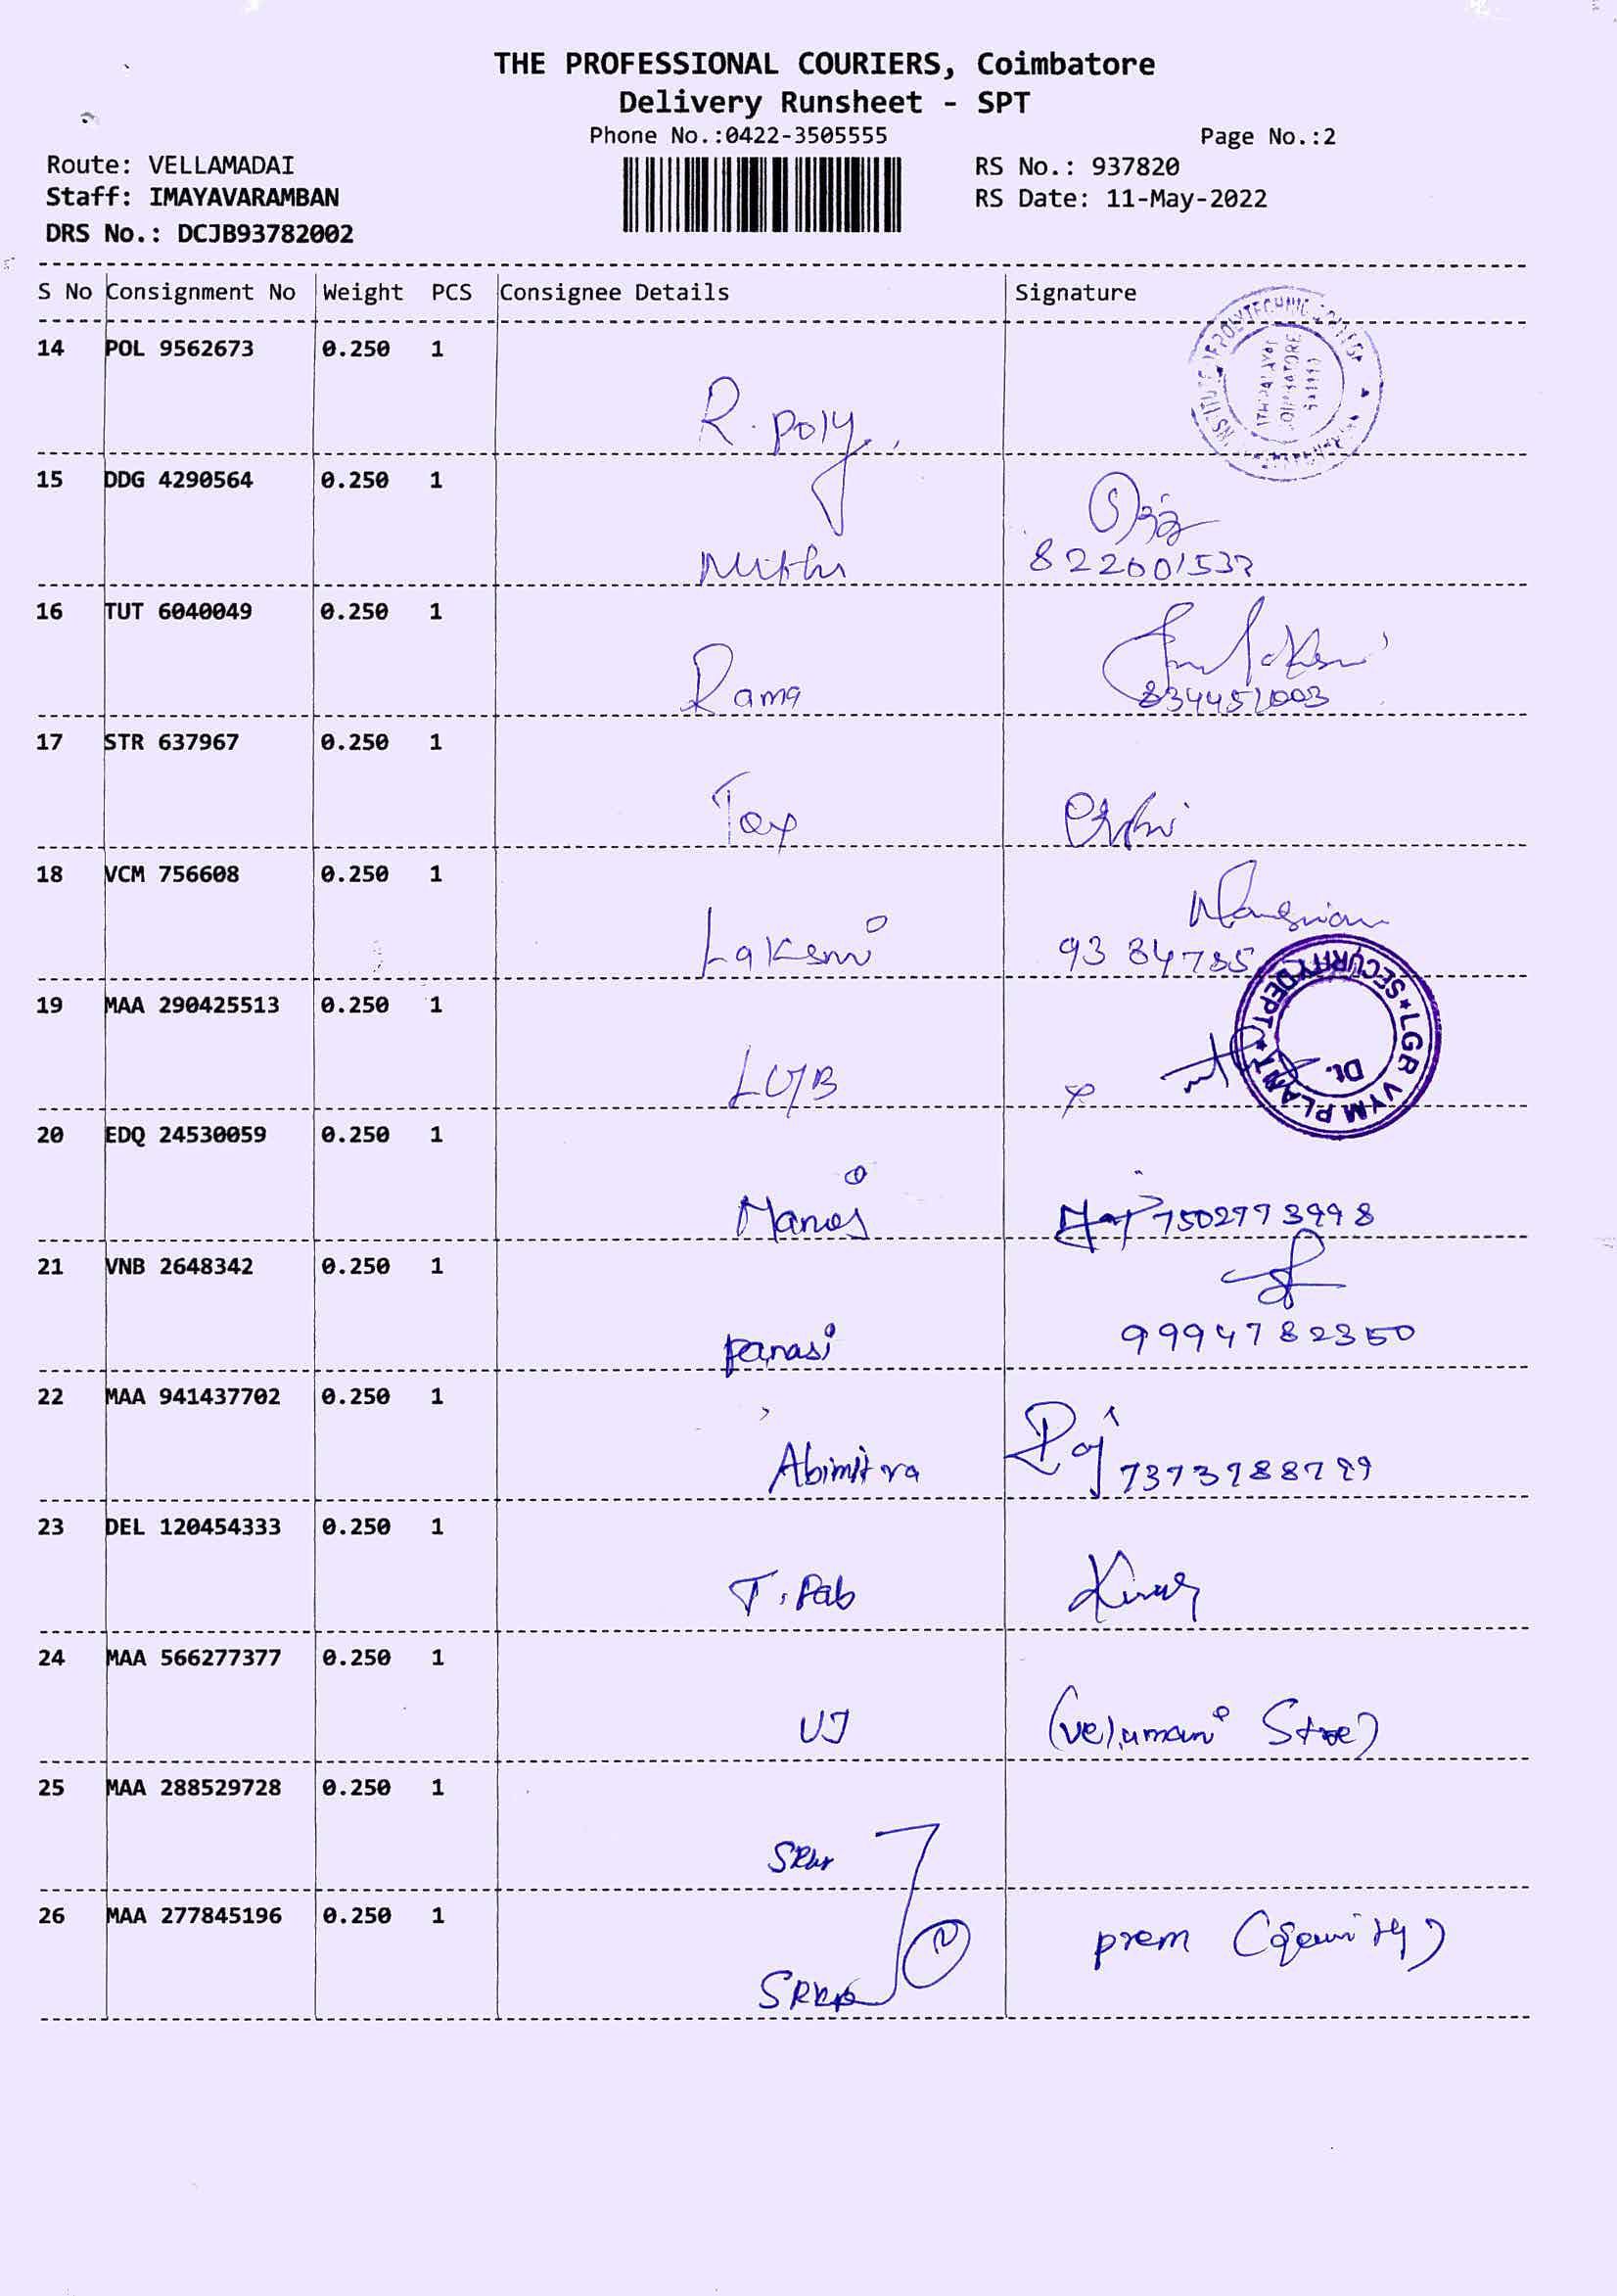 THE PROFESSIONAL COURIERS, Coimbatore
Delivery Runsheet - SPT
Phone No.:0422-3505555
Page No.:2
Route: VELLAMADAI
RS No.: 937820
Staff: IMAYAVARAMBAN
RS Date: 11-May-2022
DRS No.: DCJB93782002
S No Consignment No Weight PCS Consignee Details Signature
14 POL 9562673 0.250 1
R. Poly
15 DDG 4290564 0.250 1
16 TUT 6040049 0.250 1
Rama
17 STR 637967 0.250 1
Tax
18 VCM 756608 0.250 1
Laksmi
93 84785
19 MAA 290425513 0.250 1
LGB
SECURITY DEPT ★ LGR VYM PLANT ★
Dt.
20 EDQ 24530059 0.250 1
Manoj
21 VNB 2648342 0.250 1
9994782350
22 MAA 941437702 0.250 1
Abimitra
Raj
23 DEL 120454333 0.250 1
T. Pab
24 MAA 566277377 0.250 1
VJ
(Velumani
25 MAA 288529728 0.250 1
26 MAA 277845196 0.250 1
prem